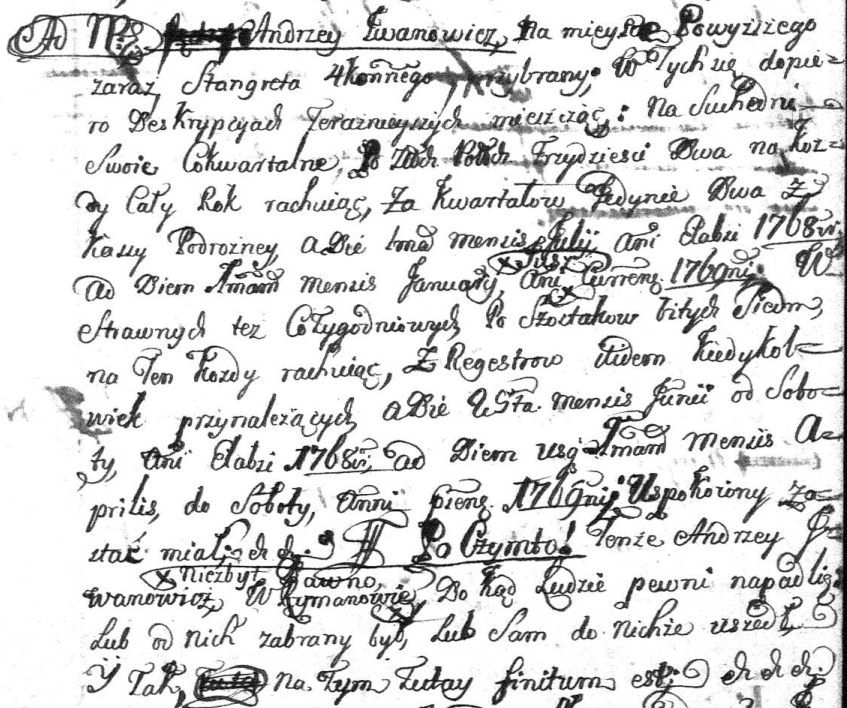 Ad Nr Andrzey Iwanowicz, Na mieysce Powyzszego
zaraz Stangreta 4konnego przybrany; W Tych się dopie=
ro Deskrypcyach Teraznieyszych mieszcząc; Na Suchedni
Swoie Cokwartalne, Po Złłch Polłch Trzydziesci Dwa na Koz=
dy Cały Rok rachuiąc, Za Kwartałow Jedynie Dwa z
Kassy Podrozney, a Die 1ma mensis Julij Ani Elabzi 1768vi
ad Diem 1mam mensis January, Ani Currens 1769ni; W
Strawnych tez Cotygodniowych, Po Szostakow bitych Siedm,
na Ten Kozdy rachuiąc, Z Regestrow itidem Kiedykol=
wiek przynalezących, a Die mensis Junii od Sobo=
ty, Ani Elabzi 1768vi, ad Diem usq 1mam mensis A=
prilis, do Soboty, Anni 1769ni; Uspokoiony zo=
stać miał; ch ch: Po Czymto! Tenze Andrzey I=
x Niezbyt Dawno,
wanowicz, W Rymanowie Do Kąd Ludzie pewni napadli;
Lub od Nich zabrany był, Lub Sam do Nichze uszedł,
Y Tak, Na Tym Tutay finitum est; ch ch ch: